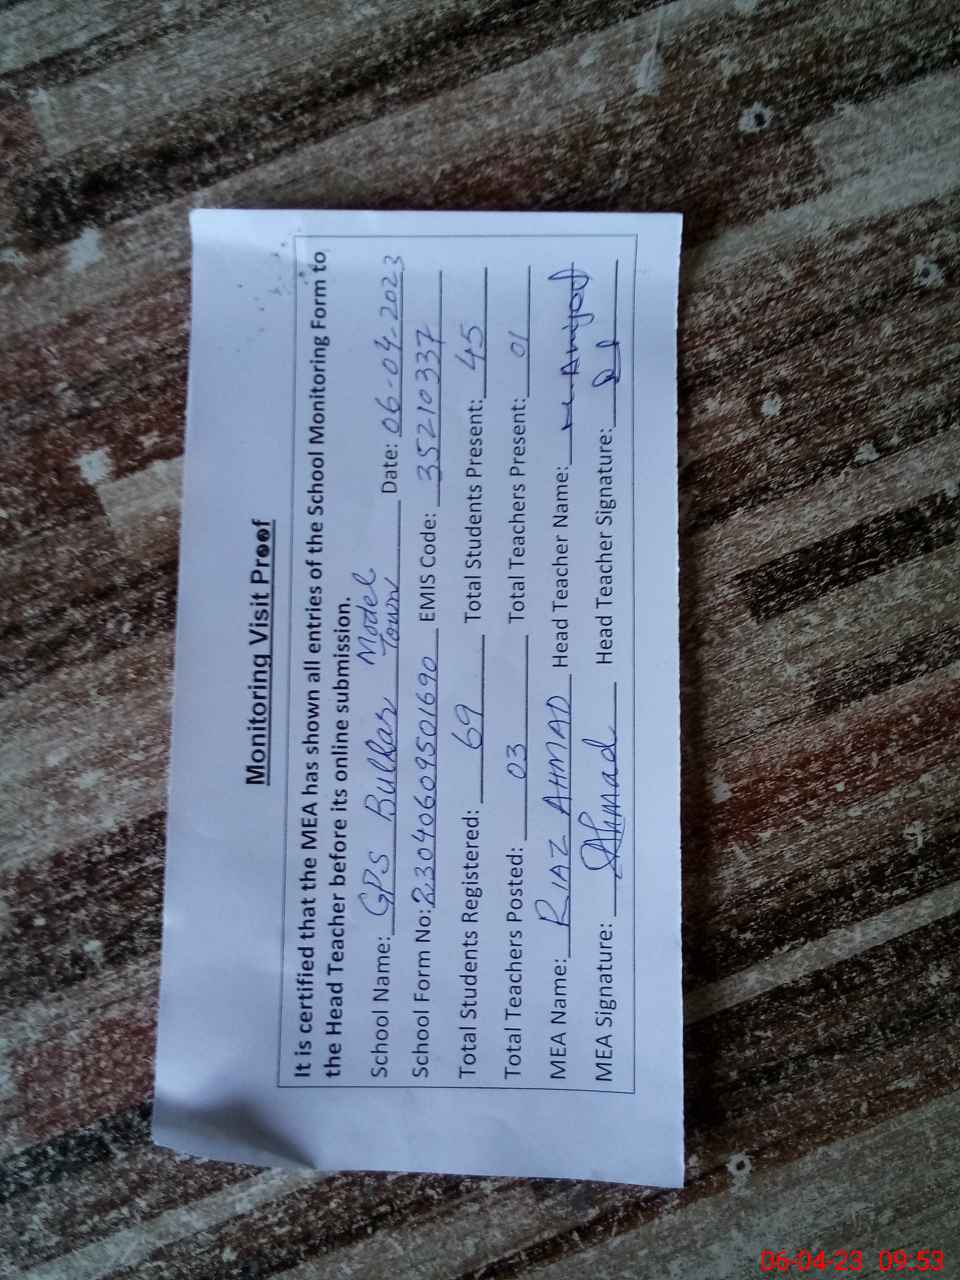 Monitoring Visit Proof
It is certified that the MEA has shown all entries of the School Monitoring Form to
the Head Teacher before its online submission.
School Name: GPS Bulhar Model Town Date: 06-04-2023
School Form No: 23040609501690 EMIS Code: 35210337
Total Students Registered: 69 Total Students Present: 45
Total Teachers Posted: 03 Total Teachers Present: 01
MEA Name: RIAZ AHMAD Head Teacher Name:
MEA Signature: Ahmad Head Teacher Signature:
06-04-23 09:53